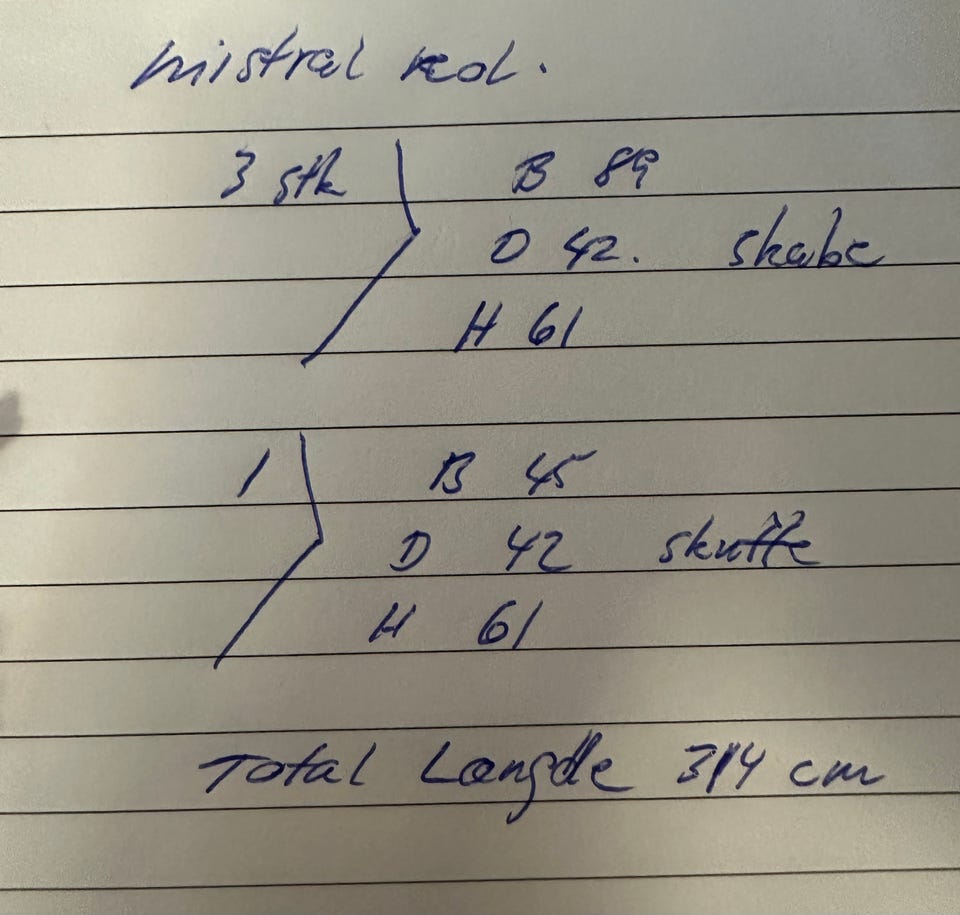 mistral rød.
3 stk B 89
D 42. skabe
H 61
1 B 45
D 42 skuffe
H 61
Total Længde 314 cm